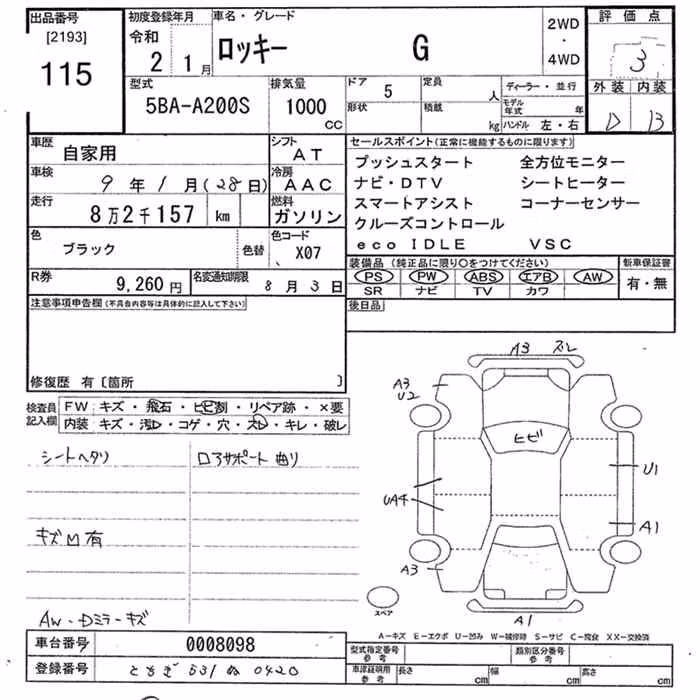 出品番号 初度登録年月 車名・グレード 2WD ・ 4WD 評価点
[2193] 令和 2 1月 ロッキー G 3
115
型式 排気量 ドア 5 定員 人 ディーラー・並行 外装 内装
5BA-A200S 1000 CC 形状 積載 kg モデル年式 年 ハンドル 左・右 D B
車歴 自家用 シフト AT セールスポイント(正常に機能するものに限ります)
車検 9年1月(28日) 冷房 AAC プッシュスタート 全方位モニター
ナビ・DTV シートヒーター
走行 8万2千157 km 燃料 ガソリン スマートアシスト コーナーセンサー
クルーズコントロール
色 ブラック 色替 色コード X07 eco IDLE VSC
装備品(純正品に限り○をつけてください) 新車保証書
R券 9,260円 名変通知期限 8月3日 PS PW ABS エアB AW 有・無
SR ナビ TV カワ
注意事項申告欄(不具合内容等は具体的に記入して下さい) 後日品
修復歴 有〔箇所 〕
検査員記入欄 FW キズ・飛石・ヒビ割・リペア跡・×要
内装 キズ・汚レ・コゲ・穴・スレ・キレ・破レ
シートヘタリ ロアサポート曲り
キズ凹有
AW・Dミラーキズ
A3 スレ
A3
U2
ヒビ
U1
UA4
A1
A3
A1
スペア
A-キズ E-エクボ U-凹み W-補修跡 S-サビ C-腐食 XX-交換済
車台番号 0008098 型式指定番号 参考 類別区分番号 参考
登録番号 とちぎ 531 ぬ 0420 車庫証明用 参考 長さ cm 幅 cm 高さ cm